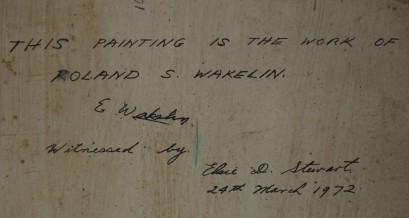 THIS PAINTING IS THE WORK OF
ROLAND S. WAKELIN.
E. Wakelin
Witnessed by
Elsie D. Stewart
24th March 1972